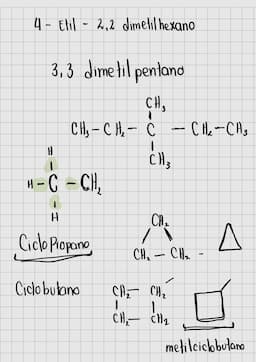 4 - Etil - 2,2 dimetilhexano
3,3 dimetil pentano
CH3
CH3 - CH2 - C - CH2 - CH3
CH3
H
H - C - CH2
H
Ciclo Propano
CH2
CH2 - CH2 -
Ciclo butano
CH2 - CH2
CH2 - CH2
metilciclobutano